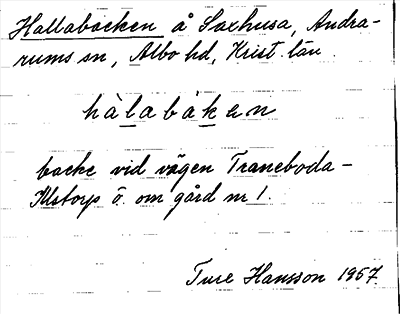 Hallabacken å Saxhusa, Andra-
rums sn, Albo hd, Krist. län.
hàlabàken
backe vid vägen Traneboda-
Alstorps ö. om gård nr 1.
Ture Hansson 1967.